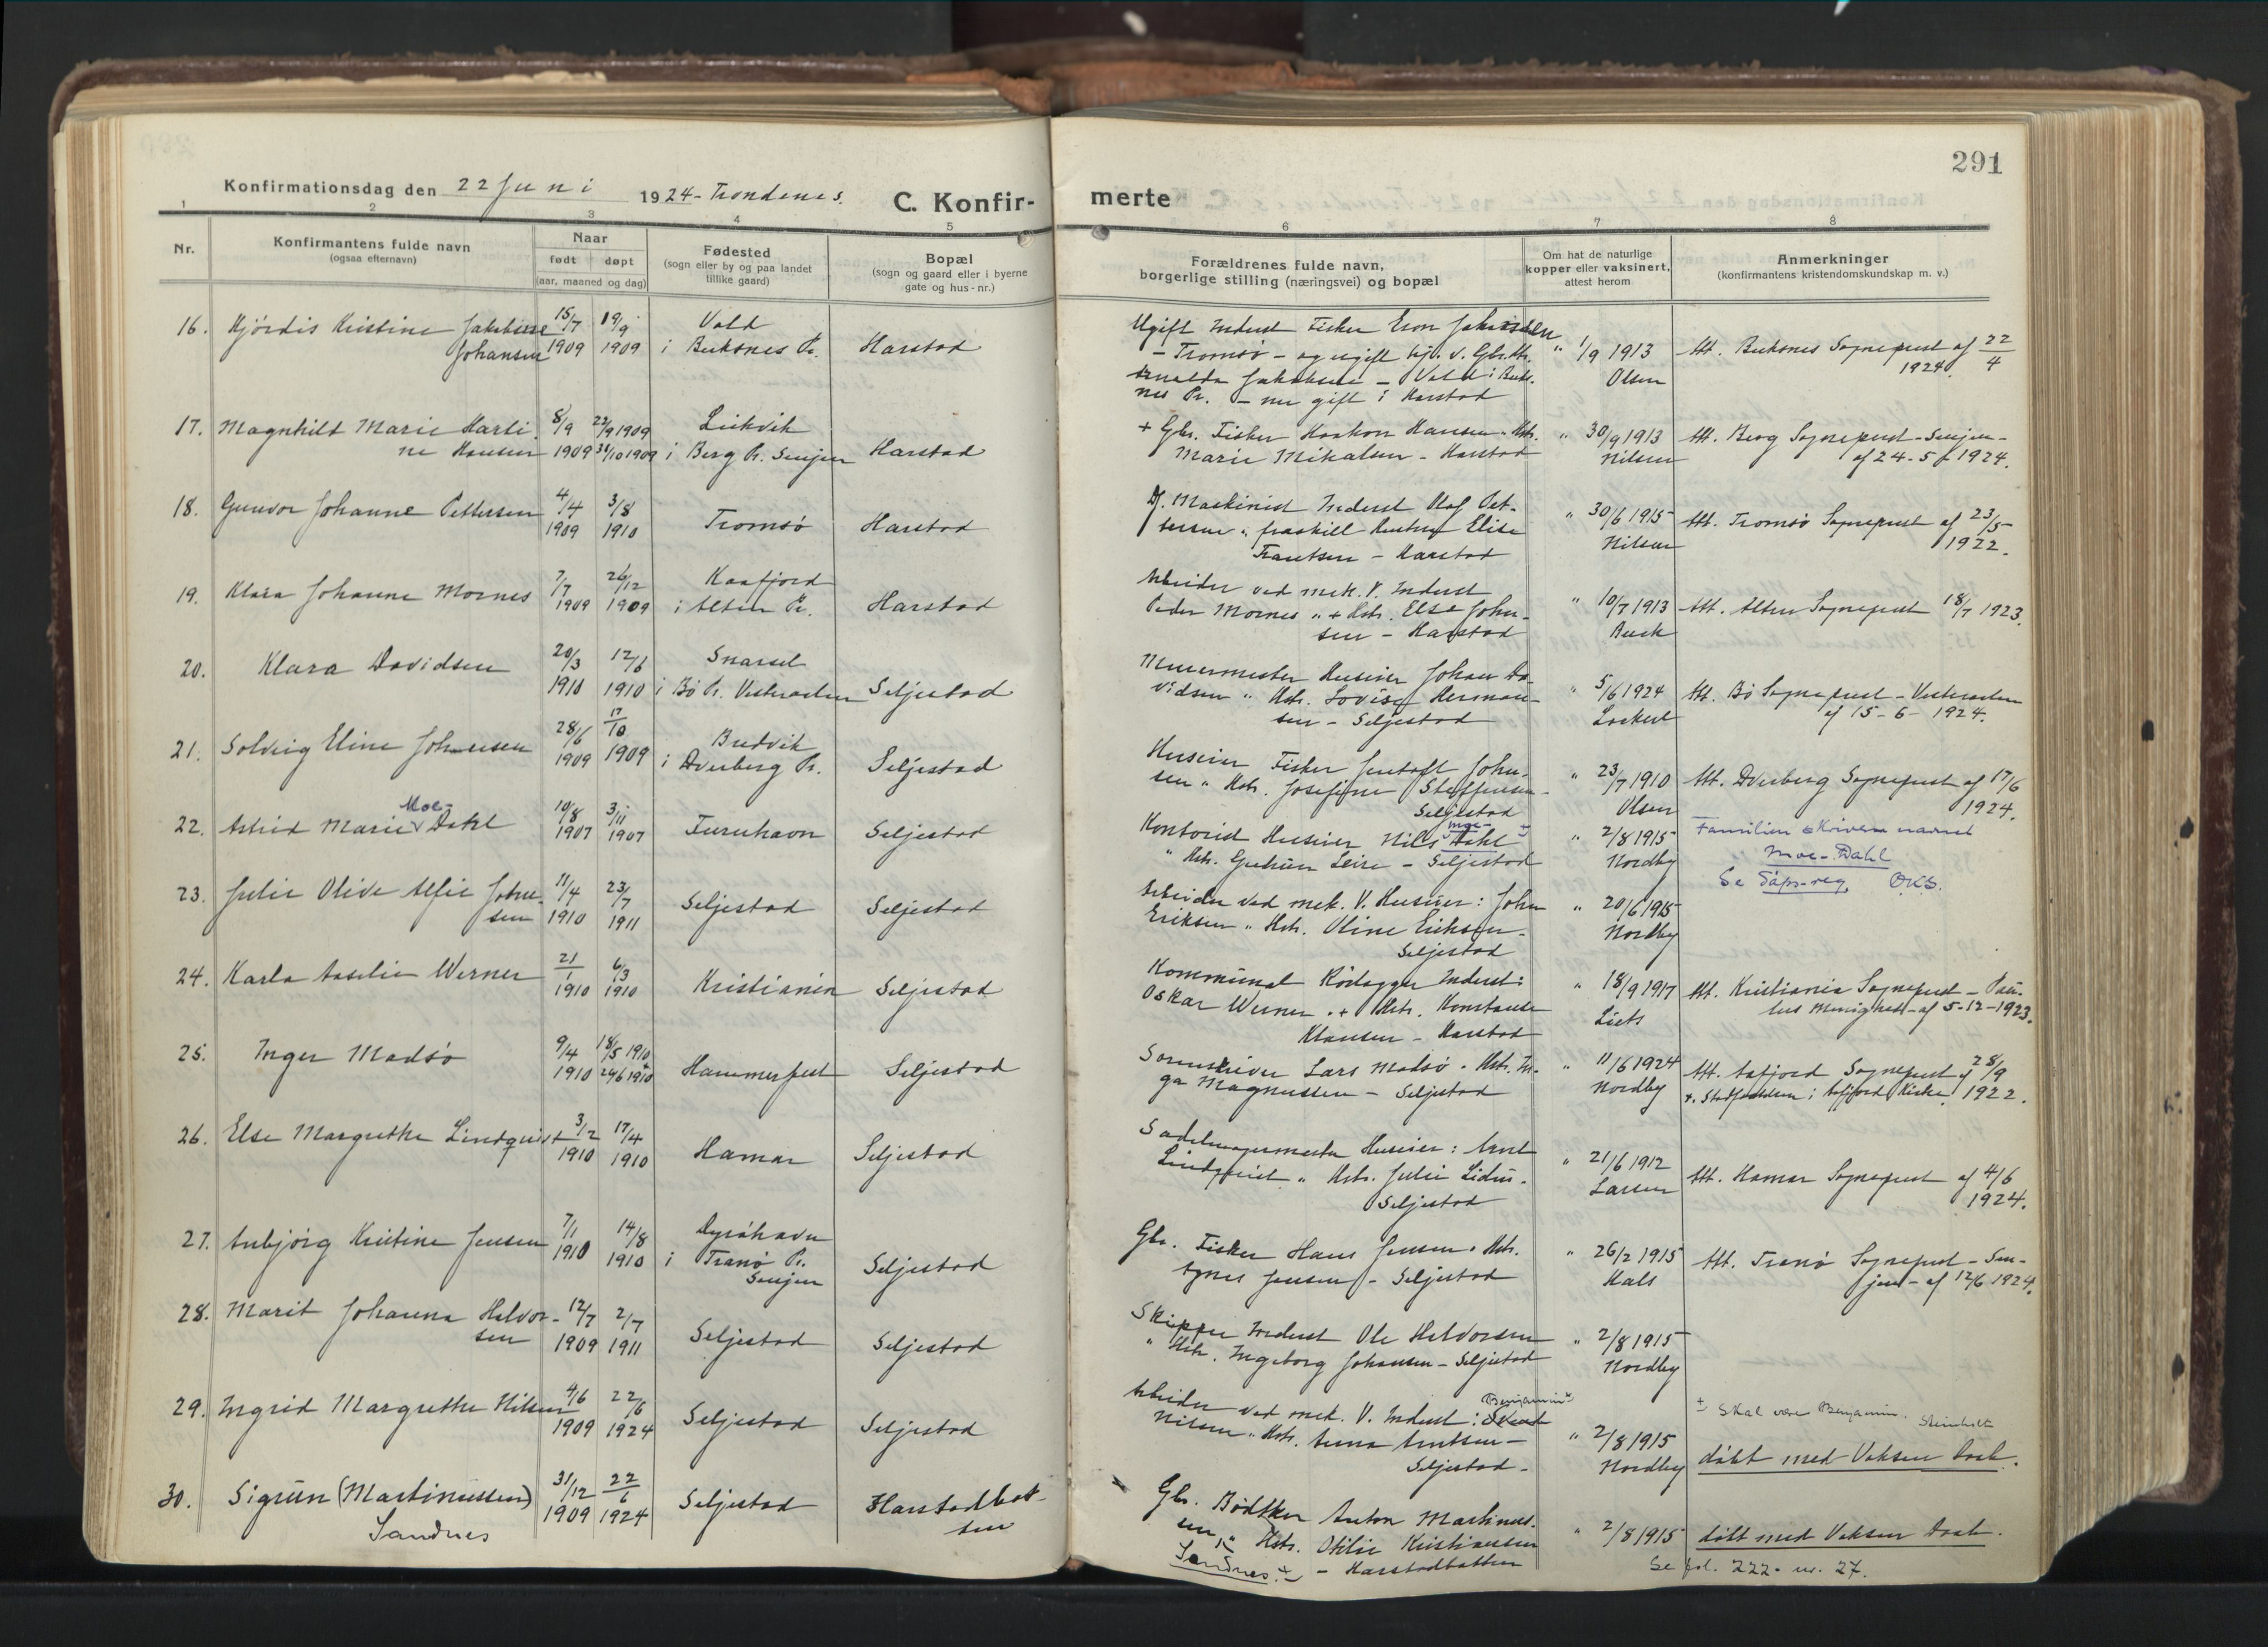 291
Konfirmationsdag den 22 Juni 1924 - Trondenes.
C. Konfirmerte
1 2 3 4 5 6 7 8
Nr.
Konfirmantens fulde navn
(ogsaa efternavn)
Naar
født døpt
(aar, maaned og dag)
Fødested
(sogn eller by og paa landet
tillike gaard)
Bopæl
(sogn og gaard eller i byerne
gate og hus-nr.)
Forældrenes fulde navn,
borgerlige stilling (næringsvei) og bopæl
Om hat de naturlige
kopper eller vaksinert,
attest herom
Anmerkninger
(konfirmantens kristendomskundskap m. v.)
16. Hjördis Kristine Jakobine
Johansen
15/7 1909
19/9 1909
Vold
i Buksnes Pr.
Harstad
Ugift Inderst Fisker
- Tromsö - og ugift
Jakobsen - Vold i Buks-
nes Pr. - nu gift i Harstad
" 1/9 1913
Olsen
Att. Buksnes Sogneprest af 22/4
1924.
17. Magnhild Marie Harti-
ne Hansen
8/9 1909
22/9 1909
31/10 1909
Leikvik
i Berg Pr. Senjen
Harstad
+ Gbr. Fisker Haakon Hansen " Hstr.
Marie Mikalsen - Harstad
" 30/9 1913
Nilsen
Att. Berg Sogneprest - Senjen -
af 24-5 1924.
18. Gunvor Johanne Pettersen
4/4 1909
3/8 1910
Tromsö
Harstad
Df. Maskinist Inderst Olaf Pet-
tersen " fraskilt Hustru Elise
Frantsen - Harstad
" 30/6 1915
Nilsen
Att. Tromsö Sogneprest af 23/5
1922.
19. Klara Johanne Mornes
7/7 1909
26/12 1909
Kaafjord
i Alten Pr.
Harstad
Arbeider ved mek. V. Inderst
Peder Mornes " + Hstr. Else John-
sen - Harstad
" 10/7 1913
Buck
Att. Alten Sogneprest 18/7 1923.
20. Klara Davidsen
20/3 1910
12/6 1910
Snarset
i Bö Pr. Vesteraalen
Seljestad
Murermester Huseier Johan Da-
vidsen " Hstr. Lovise Herman-
sen - Seljestad
" 5/6 1924
Lockert
Att. Bö Sogneprest - Vesteraalen
af 15-6-1924.
21. Solveig Eline Johnsen
28/6 1909
17/10 1909
Bredvik
i Dverberg Pr.
Seljestad
Huseier Fisker Jentoft John-
sen " Hstr. Josefine Steffensen -
Seljestad
" 23/7 1910
Olsen
Att. Dverberg Sogneprest af 17/6
1924.
22. Astrid Marie Moe- Dahl
10/8 1907
3/11 1907
Furuhavn
Seljestad
Kontorist Huseier Nils Moe- Dahl
" Hstr. Gudrun Leire - Seljestad
" 2/8 1915
Nordby
Familien skriver navnet
Moe-Dahl
Se dåps-reg. O.K.S.
23. Julie Olive Alfie John-
sen
11/4 1910
23/7 1911
Seljestad
Seljestad
Arbeider ved mek. V. Huseier: John
Eriksen " Hstr. Oline Eriksen -
Seljestad
" 20/6 1915
Nordby
24. Karla Aaselie Werner
21/1 1910
6/3 1910
Kristiania
Seljestad
Kommunal Inderst:
Oskar Werner " + Hstr. Konstanse
Klausen - Harstad
" 18/9 1917
Att. Kristiania Sogneprest - Pau-
lus Menighed - af 5-12-1923.
25. Inger Madsö
9/4 1910
18/5 1910
24/6 1910
Hammerfest
Seljestad
Sorenskriver Lars Madsö " Hstr. In-
ga Magnussen - Seljestad
" 11/6 1924
Nordby
Att. Aafjord Sogneprest af 28/9
1922.
26. Else Margrethe Lindquist
3/2 1910
17/4 1910
Hamar
Seljestad
Sadelmagermester Huseier: Arnt
Lindquist " Hstr. Julie Lidus -
Seljestad
" 21/6 1912
Larsen
Att. Hamar Sogneprest af 4/6
1924.
27. Anbjörg Kristine Jensen
7/1 1910
14/8 1910
Dyröhavn
i Tranö Pr.
Senjen
Seljestad
Gbr. Fisker Hans Jensen " Hstr.
Agnes Jensen - Seljestad
" 26/2 1915
Hals
Att. Tranö Sogneprest - Sen-
jen - af 12/6 1924.
28. Marit Johanna Halvor-
sen
12/7 1909
2/7 1911
Seljestad
Seljestad
Skipper Inderst Ole Halvorsen
" Hstr. Ingeborg Johansen - Seljestad
" 2/8 1915
Nordby
29. Ingrid Margrethe Nilsen
4/6 1909
22/6 1924
Seljestad
Seljestad
Arbeider ved mek. V. Inderst: Benjamin
Nilsen " Hstr. Anna Arntsen -
Seljestad -
" 2/8 1915
Nordby
± Skal være Benjamin. Steinholt
döbt med Voksen Daab.
30. Sigrun (Martinussen)
Sandnes
31/12 1909
22/6 1924
Seljestad
Harstadbot-
ten
Gbr. Bödtker Anton Martinus-
sen " Hstr. Otilie Kristiansen
Sandnes ± - Harstadbotten
" 2/8 1915
döbt med Voksen Daab.
Se fol. 222 - nr. 27.